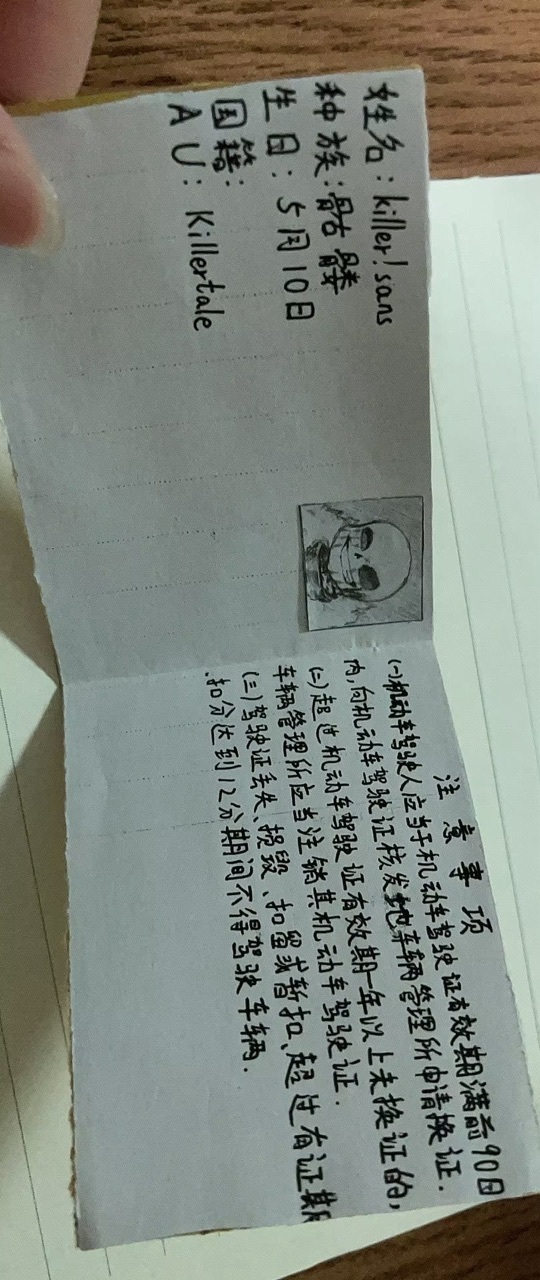 姓名：killer!sans
种族：骷髅
生日：5月10日
国籍：
AU：Killertale
注意事项
(一)机动车驾驶人应当于机动车驾驶证有效期满前90日
内，向机动车驾驶证核发地车辆管理所申请换证.
(二)超过机动车驾驶证有效期一年以上未换证的，
车辆管理所应当注销其机动车驾驶证.
(三)驾驶证丢失、损毁、扣留或暂扣、超过有证期
、扣分达到12分期间不得驾驶车辆.